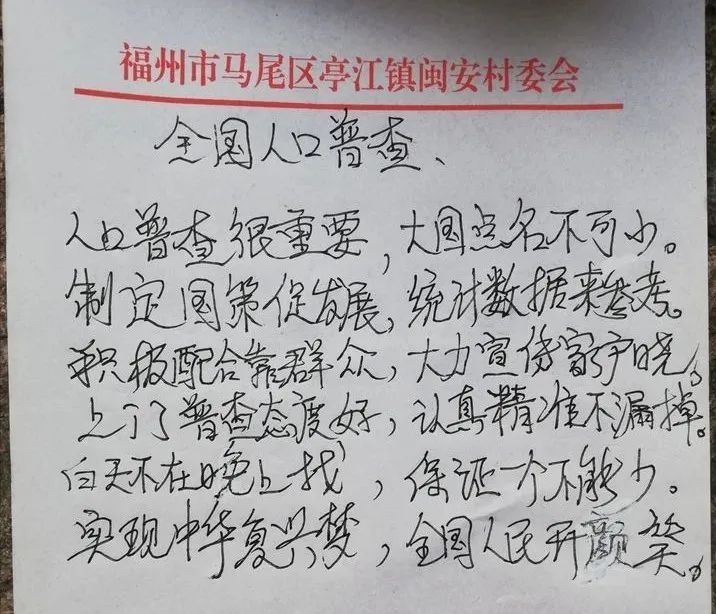 福州市马尾区亭江镇闽安村委会
全国人口普查、
人口普查很重要，大国点名不可少。
制定国策促发展，统计数据来参考。
积极配合靠群众，大力宣传家户晓，
上门普查态度好，认真精准不漏掉。
白天不在晚上找，保证一个不能少。
实现中华复兴梦，全国人民开颜笑。